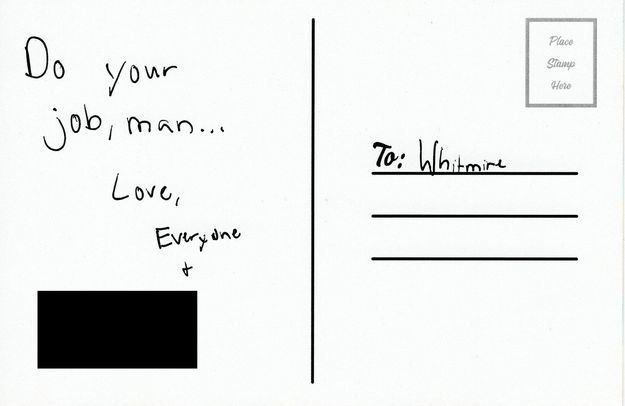 Do your
job, man...
Love,
Everyone
+
Place
Stamp
Here
To: Whitmire